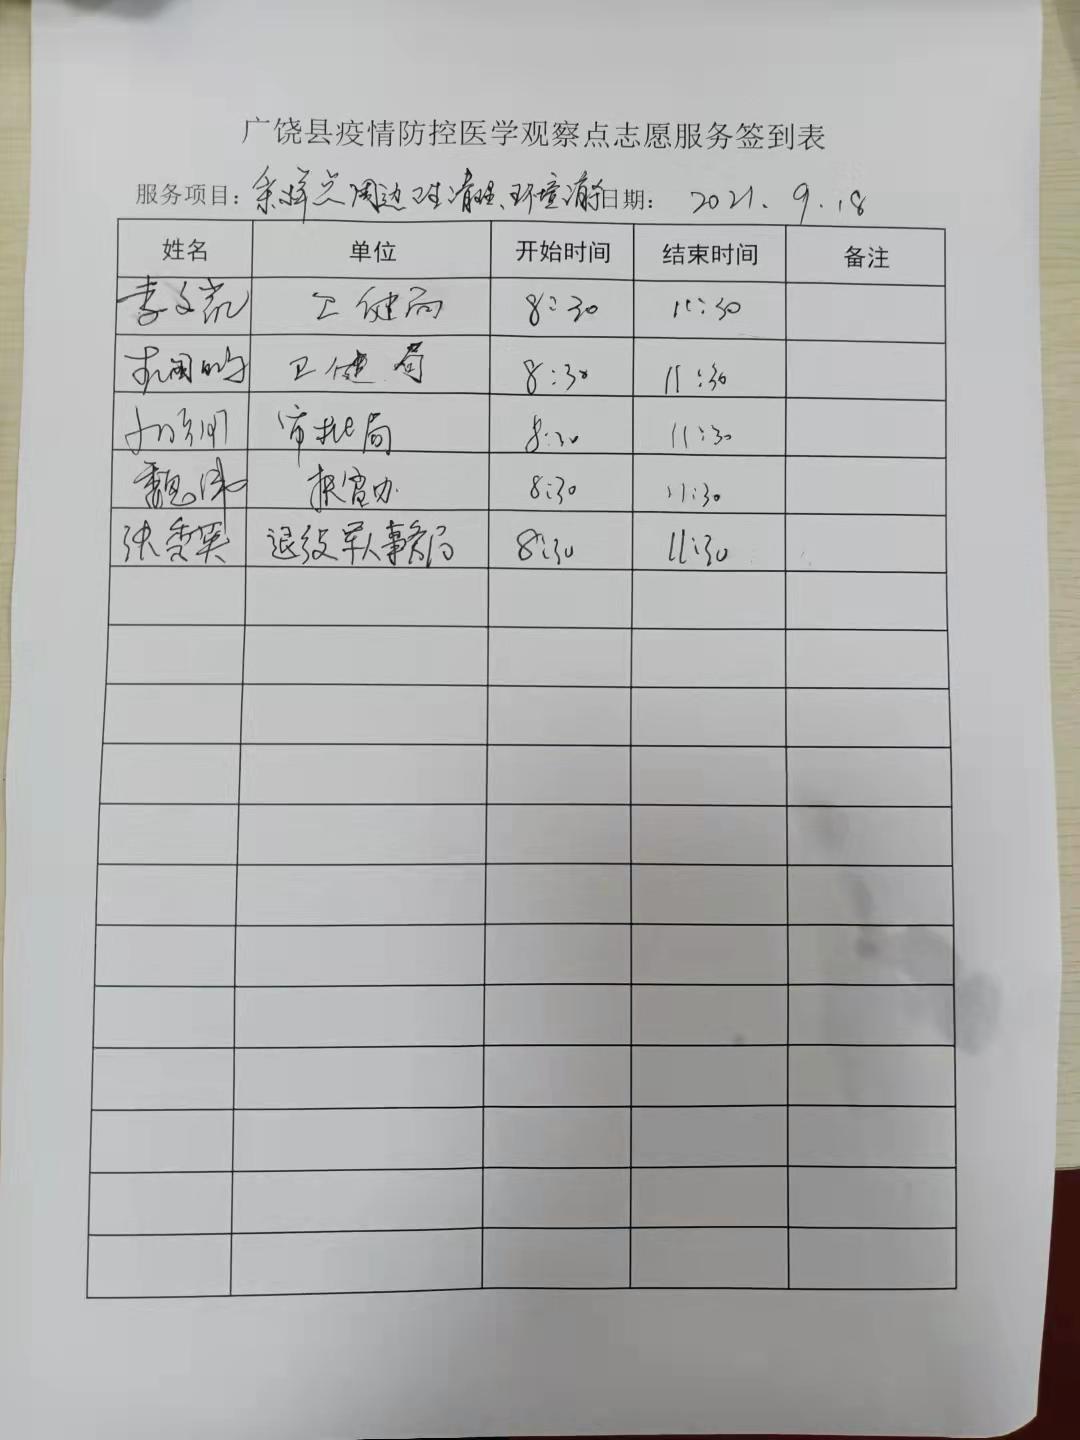 广饶县疫情防控医学观察点志愿服务签到表
服务项目：采样点周边卫生清理、环境清 日期： 2021.9.18
姓名 单位 开始时间 结束时间 备注
李文凯 卫健局 8:30 11:30
卫健局 8:30 11:30
审批局 8:30 11:30
魏 8:30 11:30
张秀英 退役军人事务局 8:30 11:30